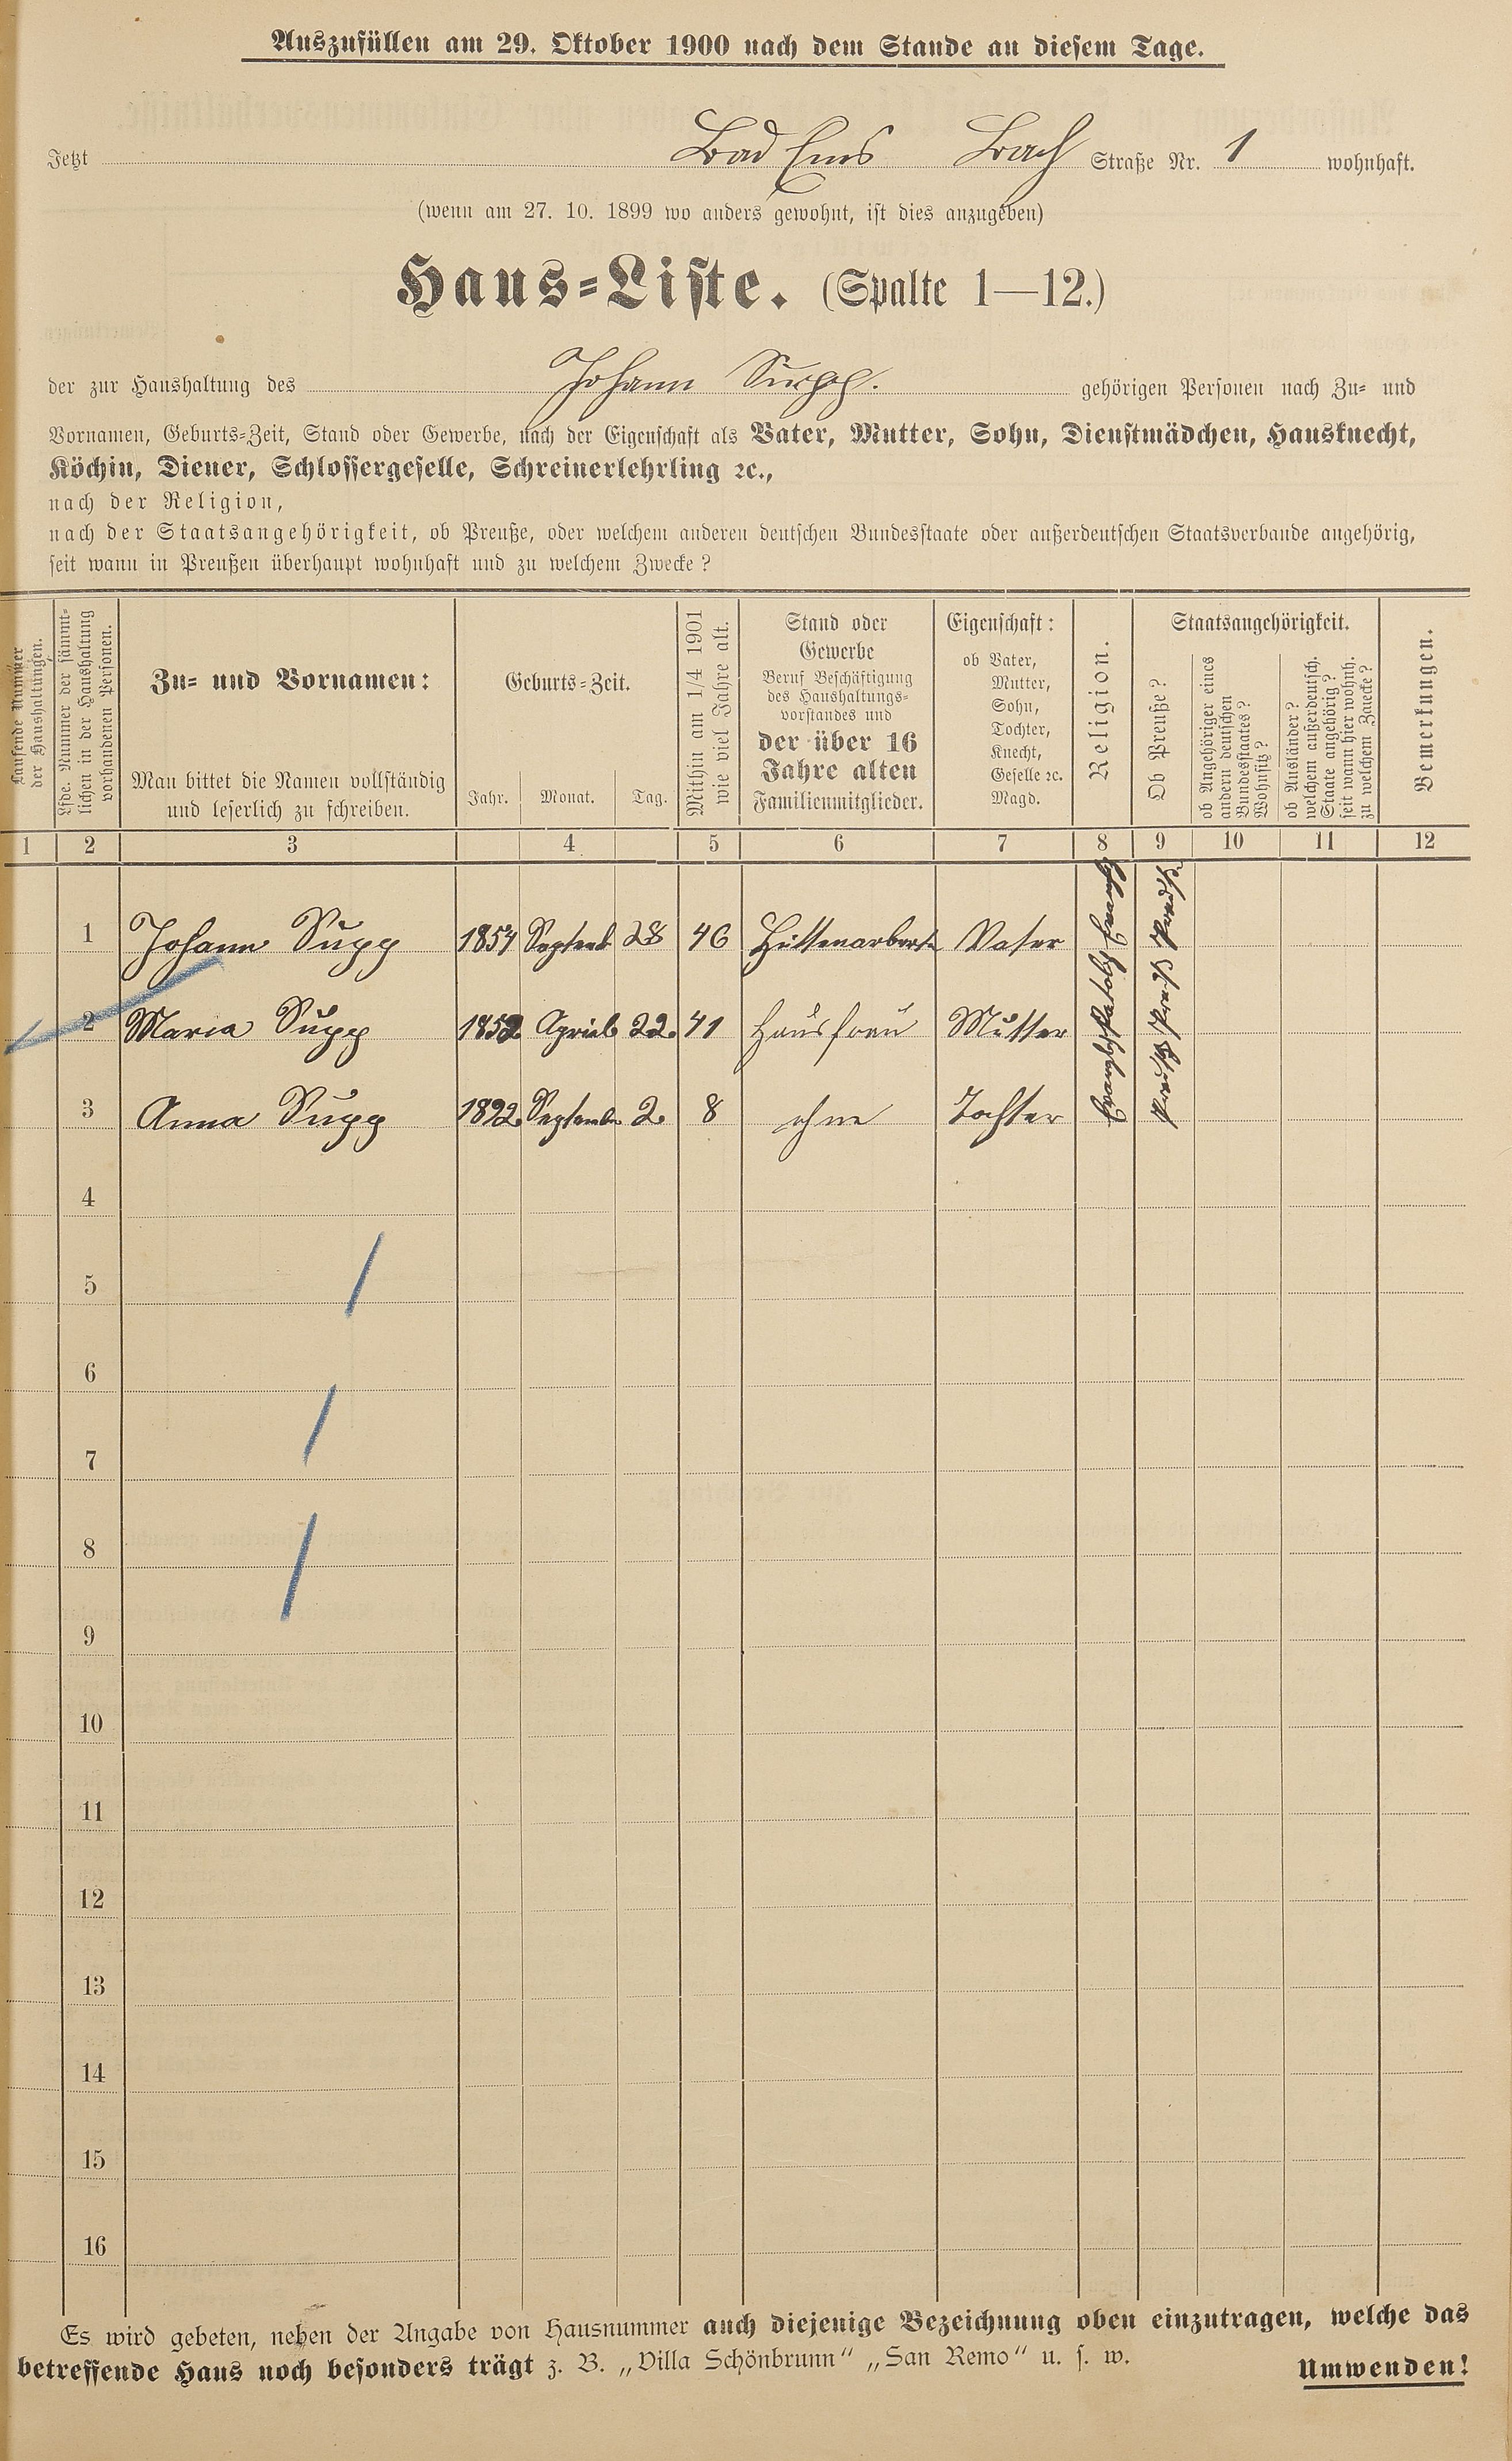 Auszufüllen am 29. Oktober 1900 nach dem Stande an diesem Tage.
Jetzt Bad Ems Bach Straße Nr. 1 wohnhaft.
(wenn am 27. 10. 1899 wo anders gewohnt, ist dies anzugeben)
Haus-Liste. (Spalte 1—12.)
der zur Haushaltung des Johann Supp. gehörigen Personen nach Zu- und
Vornamen, Geburts-Zeit, Stand oder Gewerbe, nach der Eigenschaft als Vater, Mutter, Sohn, Dienstmädchen, Hausknecht,
Köchin, Diener, Schlossergeselle, Schreinerlehrling ꝛc.,
nach der Religion,
nach der Staatsangehörigkeit, ob Preuße, oder welchem anderen deutschen Bundesstaate oder außerdeutschen Staatsverbande angehörig,
seit wann in Preußen überhaupt wohnhaft und zu welchem Zwecke?
Laufende Nummer
der Haushaltungen.
Lfde. Nummer der sämmt-
lichen in der Haushaltung
vorhandenen Personen.
Zu- und Vornamen:
Man bittet die Namen vollständig
und leserlich zu schreiben.
Geburts-Zeit.
Jahr. Monat. Tag.
Mithin am 1/4 1901
wie viel Jahre alt.
Stand oder
Gewerbe
Beruf Beschäftigung
des Haushaltungs-
vorstandes und
der über 16
Jahre alten
Familienmitglieder.
Eigenschaft:
ob Vater,
Mutter,
Sohn,
Tochter,
Knecht,
Geselle ꝛc.
Magd.
Religion.
Staatsangehörigkeit.
Ob Preuße?
ob Angehöriger eines
andern deutschen
Bundesstaates?
Wohnsitz?
ob Ausländer?
welchem außerdeutsch.
Staate angehörig?
seit wann hier wohnh.
zu welchem Zwecke?
Bemerkungen.
1 2 3 4 5 6 7 8 9 10 11 12
1 Johann Supp 1854 Septemb 28 46 Hüttenarbeiter Vater
2 Maria Supp 1852 April 22. 41 Hausfrau Mutter
3 Anna Supp 1892. Septembr 2. 8 ohne Tochter
4
5
6
7
8
9
10
11
12
13
14
15
16
Es wird gebeten, neben der Angabe von Hausnummer auch diejenige Bezeichnung oben einzutragen, welche das
betreffende Haus noch besonders trägt z. B. „Villa Schönbrunn" „San Remo" u. s. w.
Umwenden!